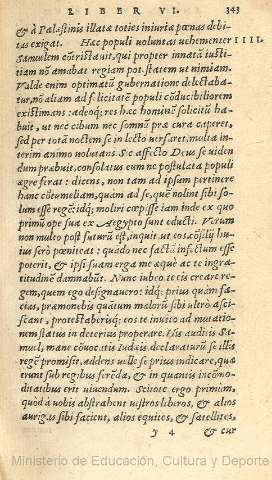 LIBER VI. 343
& à Palæstinis illatæ toties iniuriæ pœnas debi-
tas exigat. Hæc populi voluntas vehementer IIII.
Samuelem cōtristauit, qui propter innatā iusti-
tiam nō amabat regiam potestatem ut nimiam.
Valde enim optimatū gubernatione delectaba-
tur, nō aliam ad felicitatē populi cōducibiliorem
existimans: adeoq; res hæc hominē solicitū ha-
buit, ut nec cibum nec somnū præ cura caperet,
sed per totā noctem se in lecto uersaret, multa in-
terim animo uolutans. Sic affecto Deus se uiden
dum præbuit, consolatus eum ne postulata populi
ægre ferat: dicens, non tam ad ipsum pertinere
hanc cōtumeliam, quàm ad se, quē nolint sibi so-
lum esse regē: idq; moliri cœpisse iam inde ex quo
primū ope sua ex Aegypto sunt educti. Verum
non multo post futurū est, inquit, ut eos cōsilij hu-
ius serò pœniteat: quādo nec factū infectum esse
poterit, & ipsi suam erga me æquè ac te ingra-
titudinē damnabūt. Nunc iubeo te eis creare re-
gem, quem ego designauero: idq; prius quàm fa-
cias, præmonebis quātum malorū sibi ultrò asci-
scant, protestaberisq; eos te inuito ad mutatio-
nem status in deterius properare. His auditis Sa-
muel, manè cōuocatis Iudæis declaraturū se illis
regē promisit, addens uelle se prius indicare, quæ
erunt sub regibus ferēda, & in quantis incōmo-
ditatibus erit uiuendum. Scitote ergo primùm,
quòd à uobis abstrahent uestros liberos, & alios
aurigas sibi facient, alios equites, & satellites,
y 4 & cur
Ministerio de Educación, Cultura y Deporte